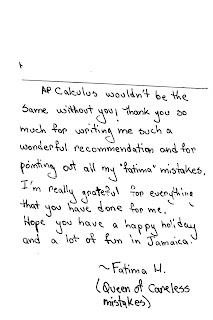 AP Calculus wouldn't be the
same without you! Thank you so
much for writing me such a
wonderful recommendation and for
pointing out all my "fatima" mistakes.
I'm really grateful for everything
that you have done for me.
Hope you have a happy holiday
and a lot of fun in Jamaica.
~Fatima H.
(Queen of Careless
mistakes)